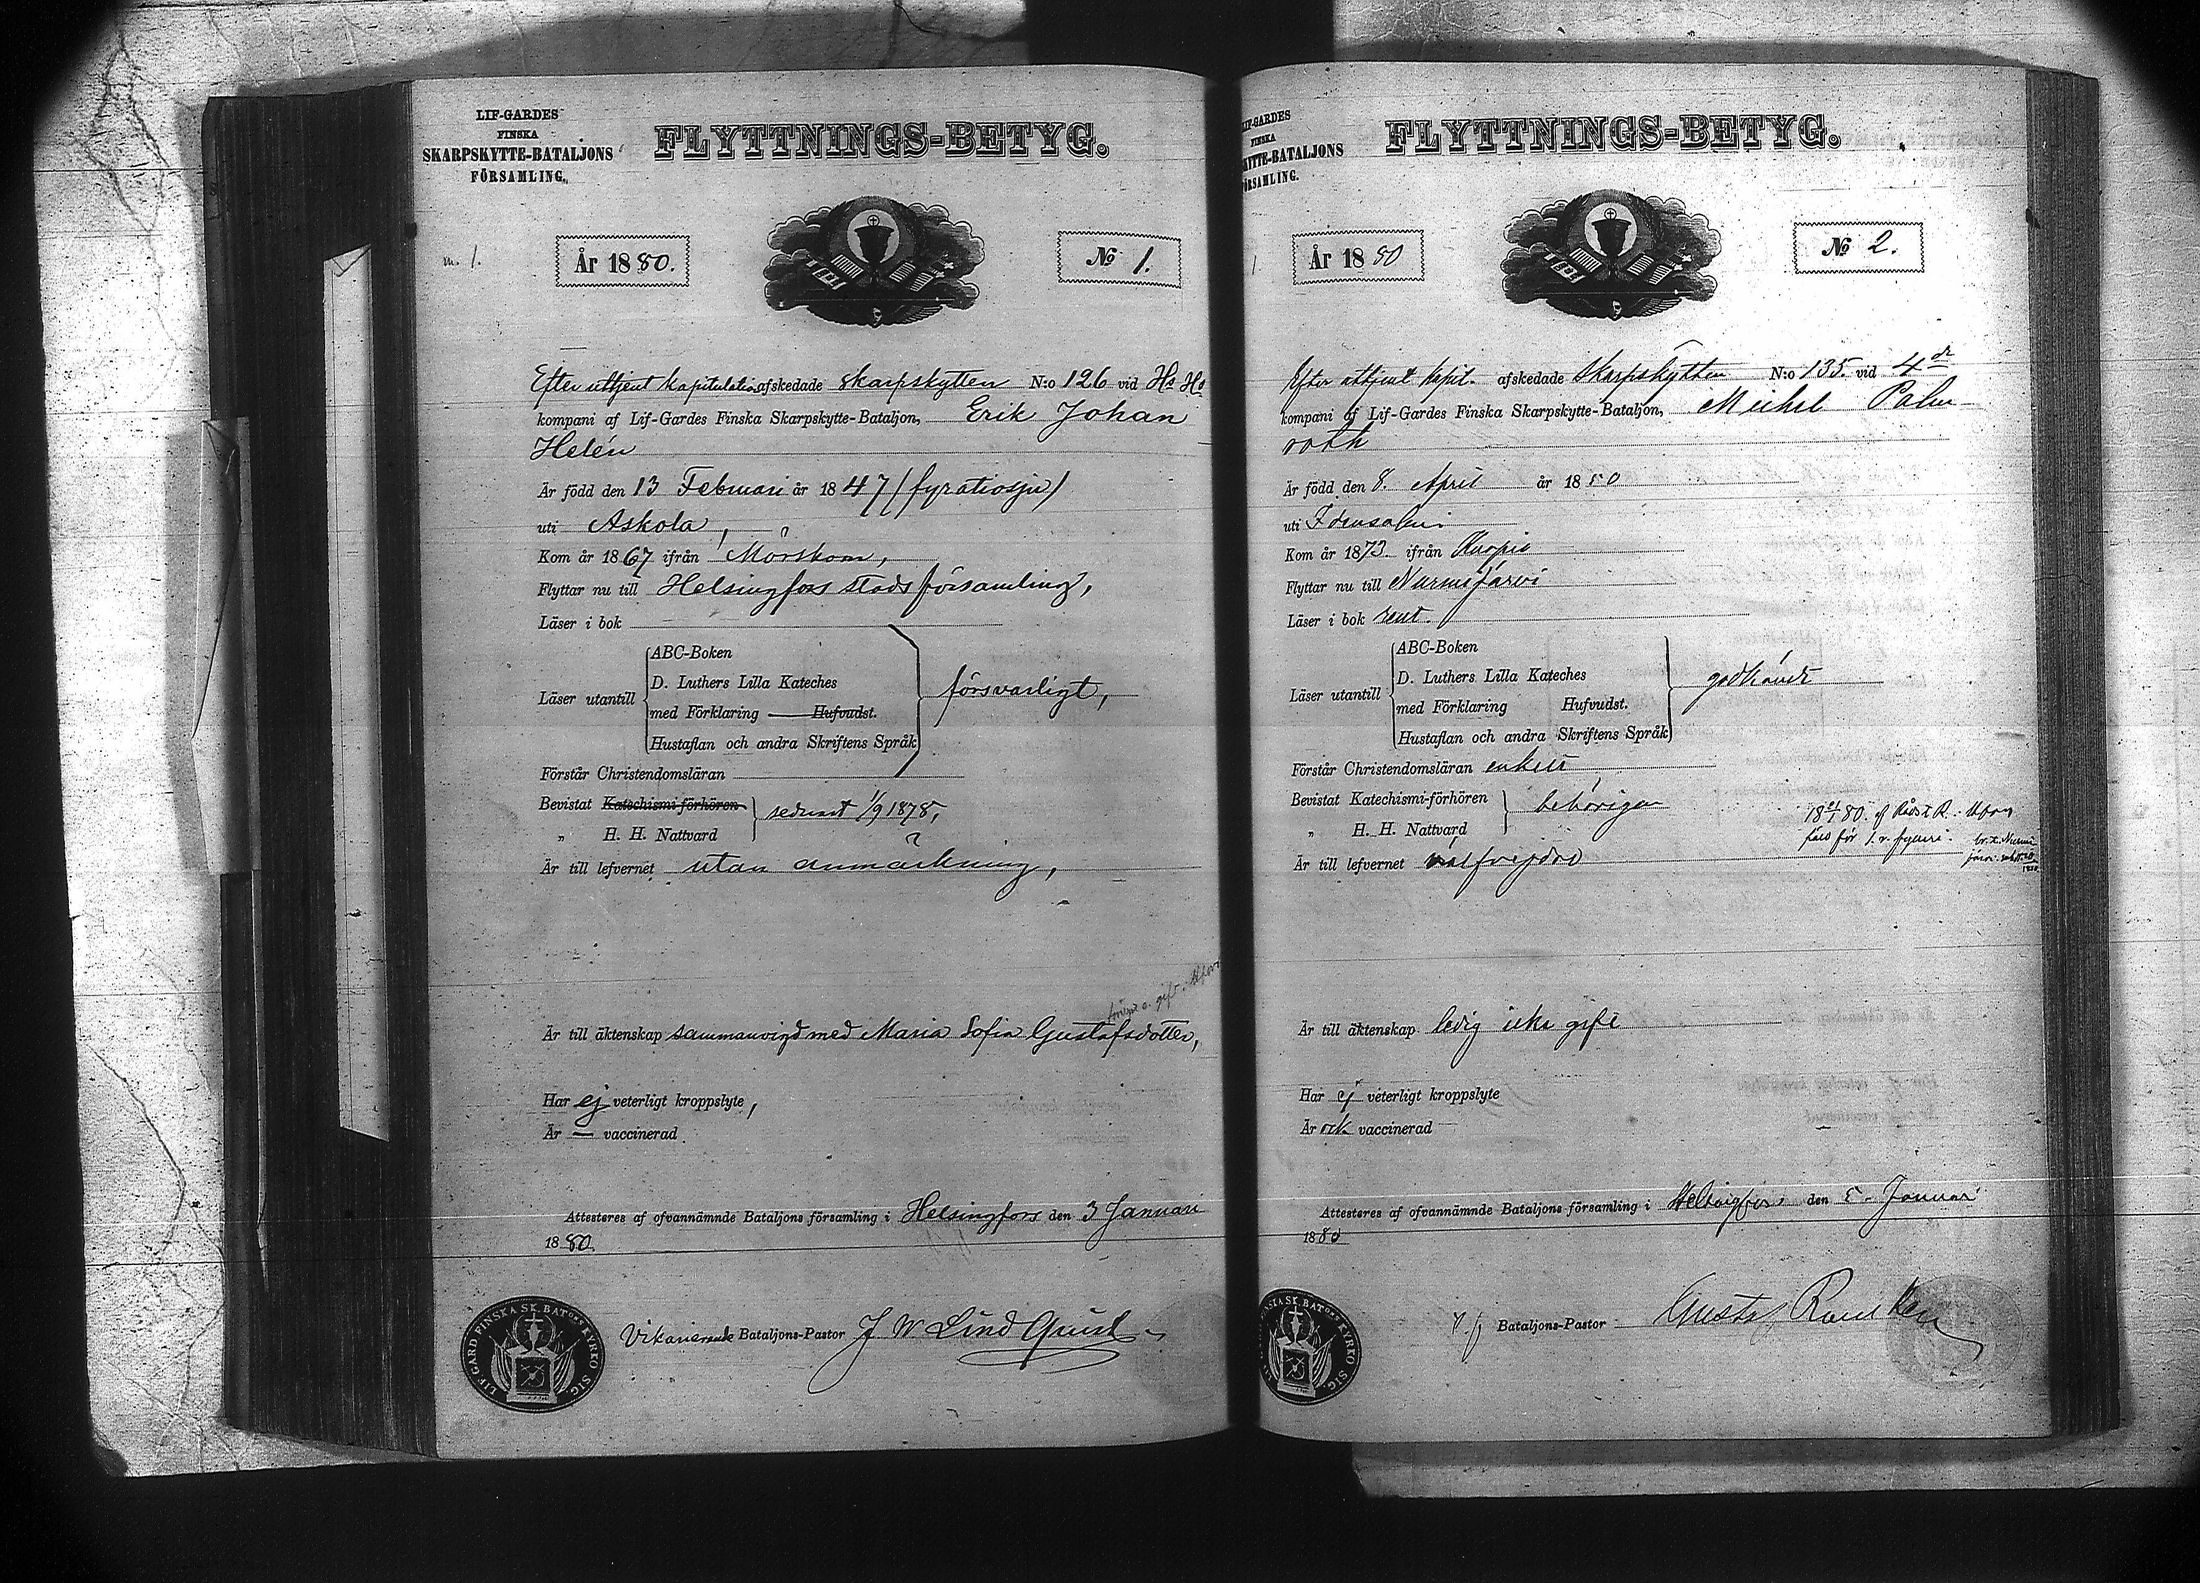 LIF-GARDES
FINSKA
SKARPSKYTTE-BATALJONS
FÖRSAMLING.
FLYTTNINGS-BETYG.
m. 1.
År 1880.
№ 1.
Efter uttjent kapitulation afskedade skarpskytten N:o 126 vid Hs Hs
kompani af Lif-Gardes Finska Skarpskytte-Bataljon, Erik Johan
Helén
Är född den 13 Februari år 1847 (fyratiosju)
uti Askola,
Kom år 1867 ifrån Mörskom,
Flyttar nu till Helsingfors stads församling,
Läser i bok
ABC-Boken
D. Luthers Lilla Kateches
Läser utantill
med Förklaring Hufvudst.
Hustaflan och andra Skriftens Språk
försvarligt,
Förstår Christendomsläran
Bevistat Katechismi-förhören
„ H. H. Nattvard
sednast 1/9 1878,
Är till lefvernet utan anmärkning,
Är till äktenskap sammanvigd med Maria Sofia Gustafsdotter,
Har ej veterligt kroppslyte,
Är — vaccinerad
Attesteres af ofvannämnde Bataljons församling i Helsingfors den 3 Januari
1880.
LIF. GARD. FINSKA SK. BATONS KYRKO SIG.
Vikarierande Bataljons-Pastor J W Lind Quist
LIF-GARDES
FINSKA
SKYTTE-BATALJONS
FÖRSAMLING.
FLYTTNINGS-BETYG.
År 1880
№ 2.
Efter uttjent kapit. afskedade Skarpskytten N:o 135. vid 4de
kompani af Lif-Gardes Finska Skarpskytte-Bataljon, Mickel Palm
roth
Är född den 8. April år 1850
uti Idensalmi
Kom år 1873 ifrån Kuopio
Flyttar nu till Nurmijärvi
Läser i bok rent.
ABC-Boken
D. Luthers Lilla Kateches
Läser utantill
med Förklaring Hufvudst.
Hustaflan och andra Skriftens Språk
godkändt
Förstår Christendomsläran enkelt
Bevistat Katechismi-förhören
„ H. H. Nattvard
behörigen
Är till lefvernet välfrejdad
Är till äktenskap ledig icke gift
Har ej veterligt kroppslyte
Är ock vaccinerad
Attesteres af ofvannämnde Bataljons församling i Helsingfors den 5. Januari
1880
Bataljons-Pastor Gustaf Rancken